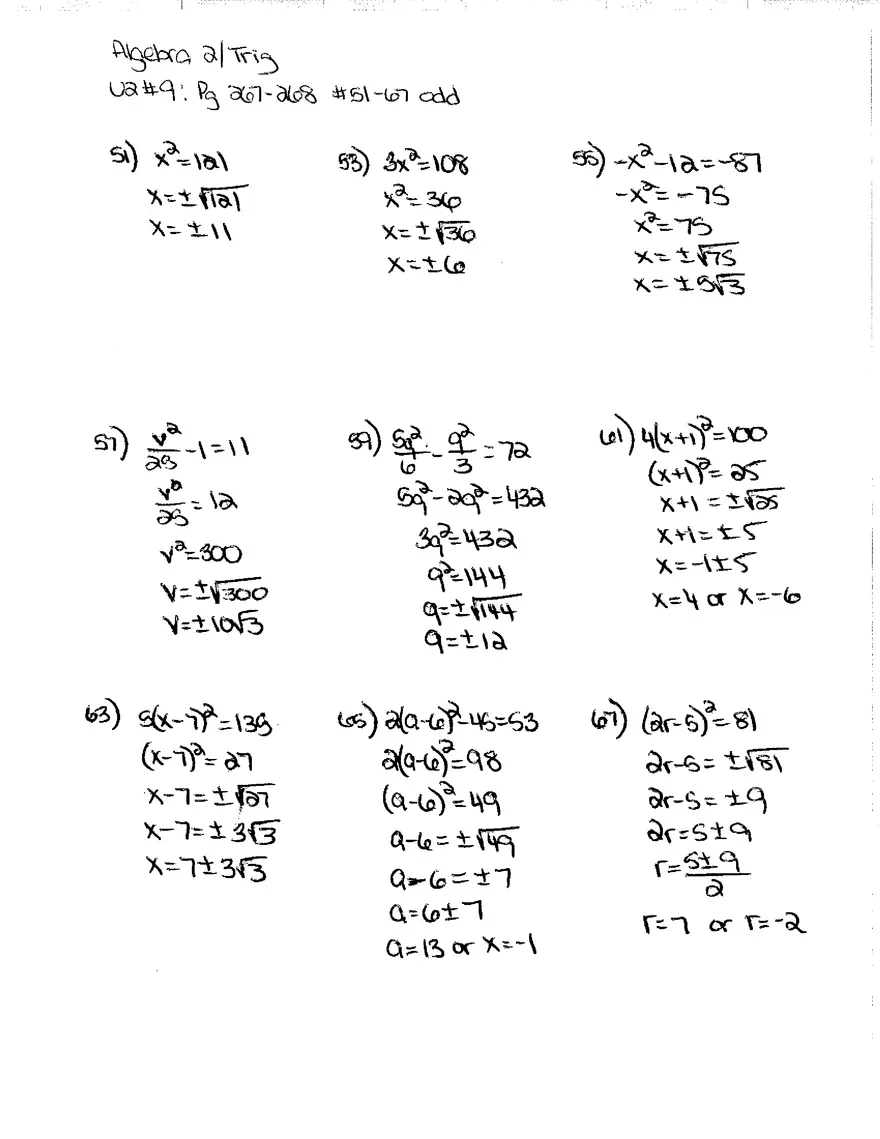 Algebra 2/Trig
U2#9: Pg 267-268 #51-67 odd
51) x²=121
x=±√121
x=±11
53) 3x²=108
x²=36
x=±√36
x=±6
55) -x²-12=-87
-x²=-75
x²=75
x=±√75
x=±5√3
57) v²/25 -1=11
v²/25 =12
v²=300
v=±√300
v=±10√3
59) 5q²/6 - q²/3 =72
5q²-2q²=432
3q²=432
q²=144
q=±√144
q=±12
61) 4(x+1)²=100
(x+1)²=25
x+1=±√25
x+1=±5
x=-1±5
x=4 or x=-6
63) 5(x-7)²=135
(x-7)²=27
x-7=±√27
x-7=±3√3
x=7±3√3
65) 2(a-6)²-45=53
2(a-6)²=98
(a-6)²=49
a-6=±√49
a-6=±7
a=6±7
a=13 or x=-1
67) (2r-5)²=81
2r-5=±√81
2r-5=±9
2r=5±9
r=5±9/2
r=7 or r=-2